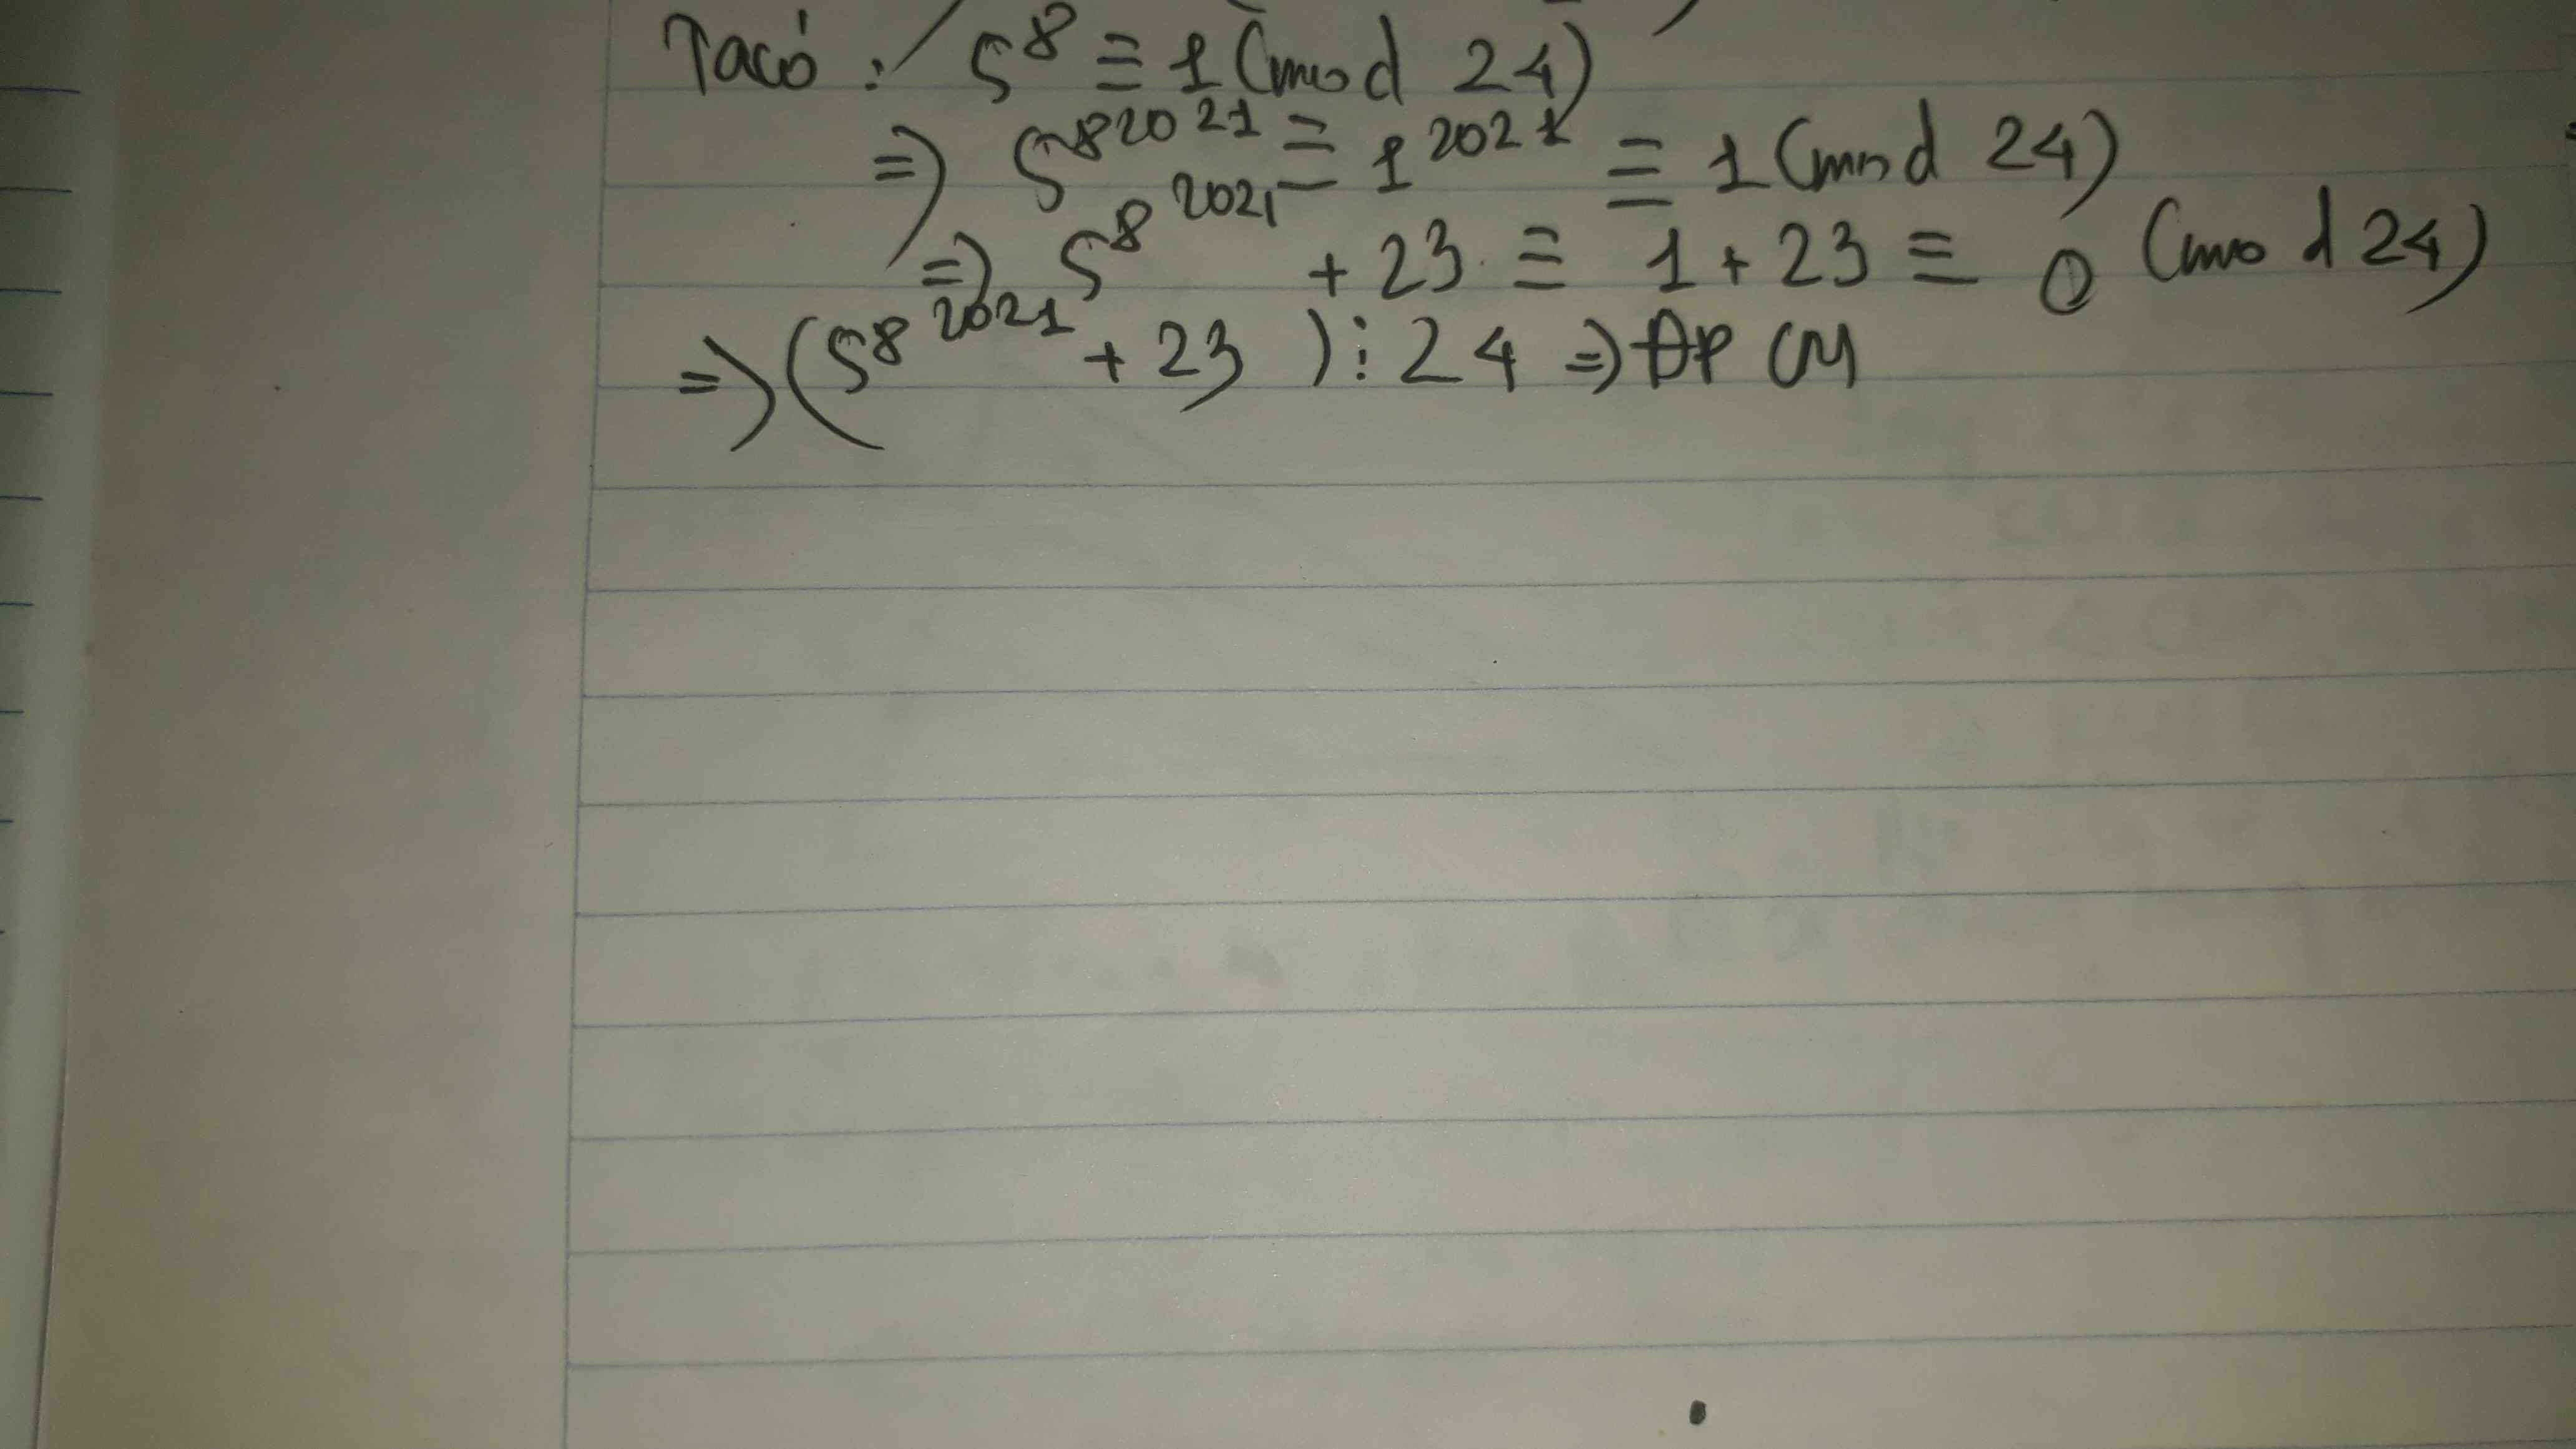 Ta có : 5⁸ ≡ 1 (mod 24)
=> 5^8^2021 ≡ 1^2021 ≡ 1 (mod 24)
=> 5^8^2021 + 23 ≡ 1 + 23 ≡ 0 (mod 24)
=> (5^8^2021 + 23) ⋮ 24 => ĐPCM